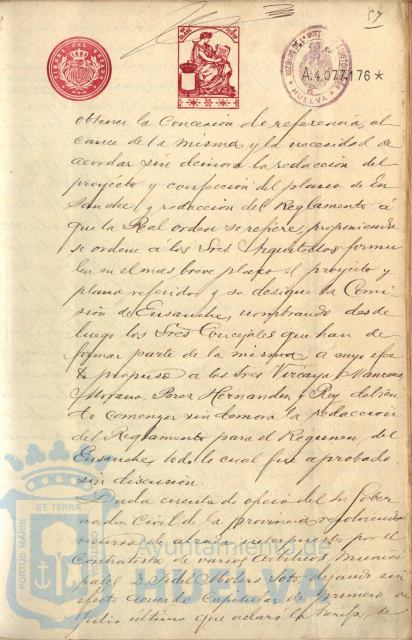 57
A.4.077.176 ★
HUELVA
obtener la Concesión de referencia, al
cance de la misma y la necesidad de
acordar sin demora la redacción del
proyecto y confección del plano de En
sanche y redacción del Reglamento á
que la Real orden se refiere, proponiendo
se ordene a los Sres Arquitectos formu
len en el mas breve plazo el proyecto y
plano referidos y se designe la Comi
sión de Ensanche, nombrando desde
luego los Sres Concejales que han de
formar parte de la misma, a cuyo efec
to propuso a los Sres Vizcaya Manzano,
Moyano, Perez Hernandez y Rey debien
do comenzar sin demora la redacción
del Reglamento para el Regimen del
Ensanche, todo lo cual fue aprobado
sin discusión.
Dada cuenta de oficio del Sr Gober
nador Civil de la provincia resolviendo
recurso de alzada interpuesto por el
Contratista de varios Arbitrios munici
pales D. Fidel Molers Soto, dejando sin
efecto acuerdo Capitular de primero de
Julio último que aclaró la tarifa de
PORTUS MARIS ET TERRÆ
Ayuntamiento de
HUELVA